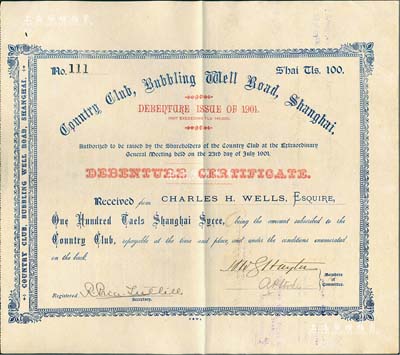 No. 111
S'hai Tls. 100.
Country Club, Bubbling Well Road, Shanghai.
DEBENTURE ISSUE OF 1901.
Authorized to be raised by the Shareholders of the Country Club at the Extraordinary
General Meeting held on the 23rd day of July 1901.
DEBENTURE CERTIFICATE.
Received from CHARLES H. WELLS, ESQUIRE,
One Hundred Taels Shanghai Sycee, being the amount subscribed to the
Country Club, repayable at the time and place and under the conditions enumerated
on the back.
Members
of
Committee.
Registered
Secretary.
COUNTRY CLUB, BUBBLING WELL ROAD, SHANGHAI.